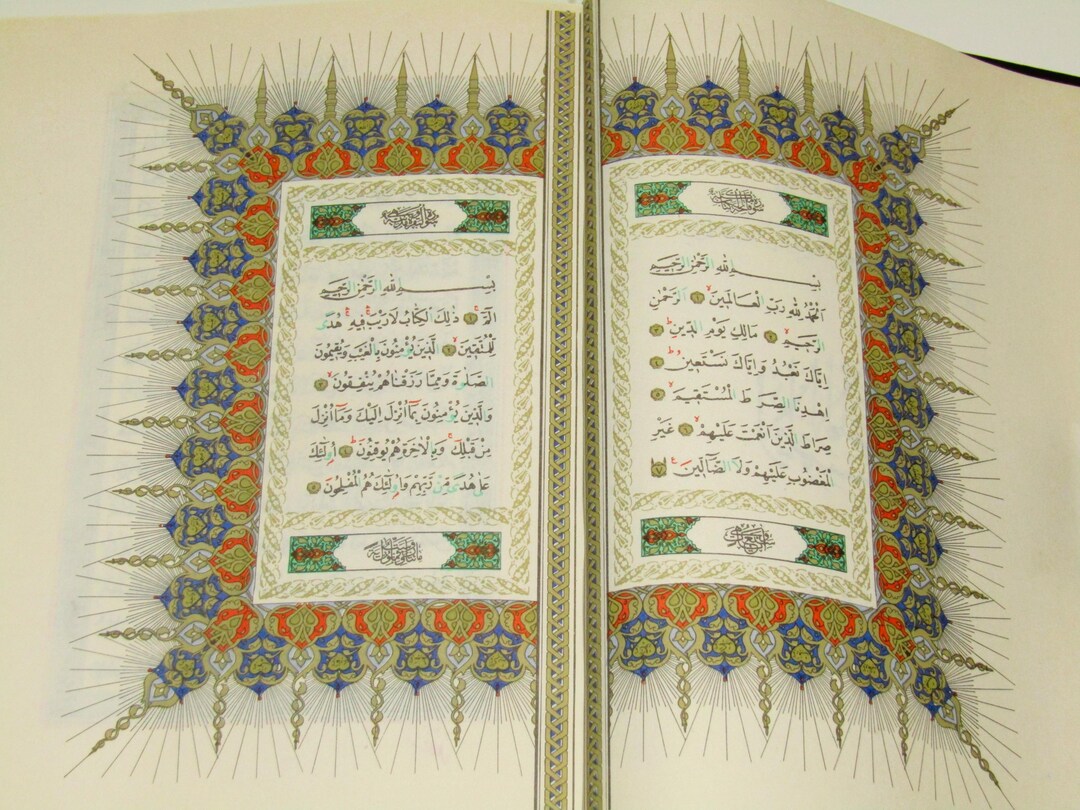 سورة الفاتحة
بسم الله الرحمن الرحيم
اَلْحَمْدُ لِلّٰهِ رَبِّ الْعَالَمينَ ١ اَلرَّحْمٰنِ
الرَّحيمِ ٢ مَالِكِ يَوْمِ الدّينِ ٣
اِيَّاكَ نَعْبُدُ وَاِيَّاكَ نَسْتَعينُ ٤
اِهْدِنَا الصِّرَاطَ الْمُسْتَقيمَ ٥
صِرَاطَ الَّذينَ اَنْعَمْتَ عَلَيْهِمْ ٦ غَيْرِ
الْمَغْضُوبِ عَلَيْهِمْ وَلَا الضَّالّينَ ٧
بسم الله الرحمن الرحيم
الٓمٓ ١ ذٰلِكَ الْكِتَابُ لَا رَيْبَ فيهِ هُدًى
لِلْمُتَّقينَ ٢ اَلَّذينَ يُؤْمِنُونَ بِالْغَيْبِ وَيُقيمُونَ
الصَّلٰوةَ وَمِمَّا رَزَقْنَاهُمْ يُنْفِقُونَ ٣
وَالَّذينَ يُؤْمِنُونَ بِمَٓا اُنْزِلَ اِلَيْكَ وَمَٓا اُنْزِلَ
مِنْ قَبْلِكَ وَبِالْاٰخِرَةِ هُمْ يُوقِنُونَ ٤ اُولٰٓئِكَ
عَلٰى هُدًى مِنْ رَبِّهِمْ وَاُولٰٓئِكَ هُمُ الْمُفْلِحُونَ ٥